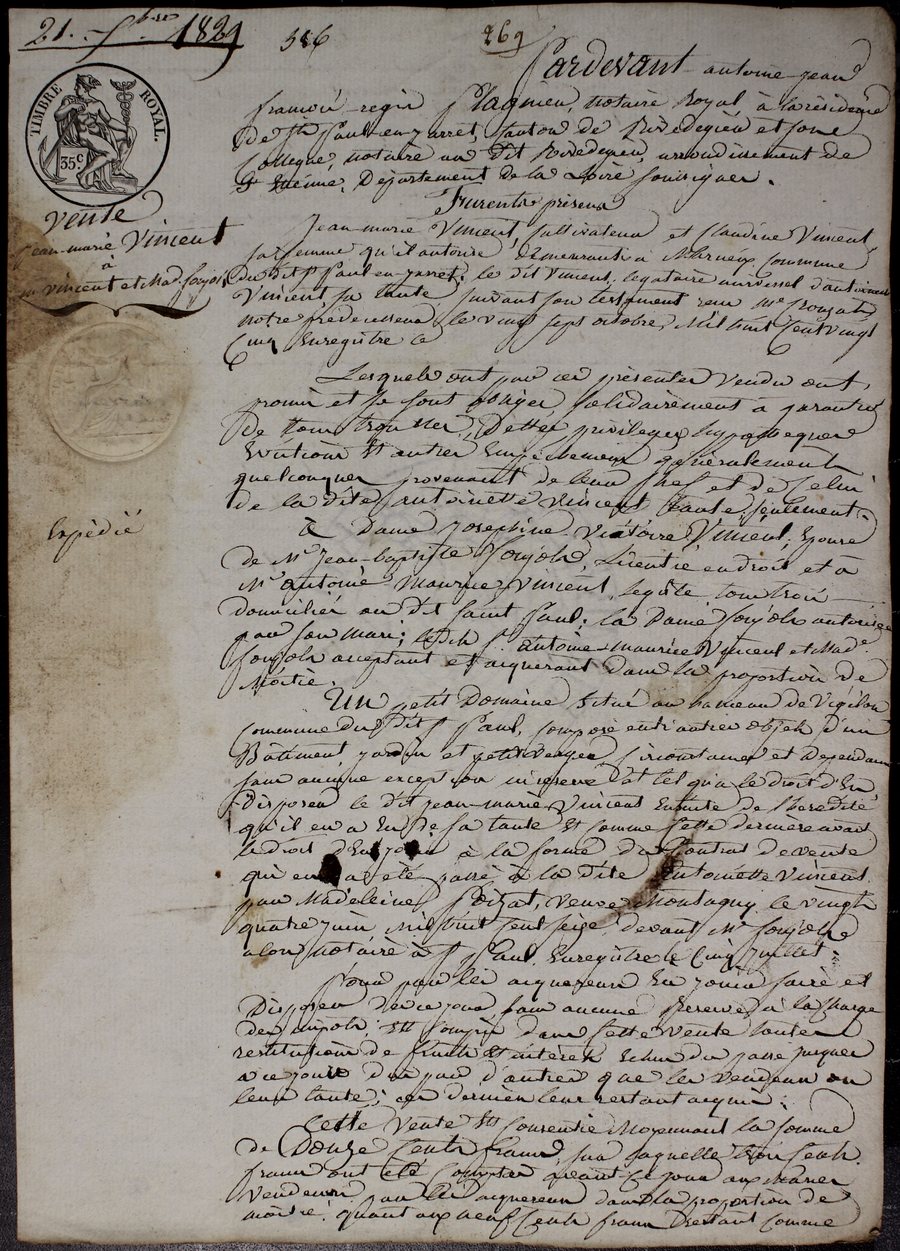 21. 7bre 1829
586
269
TIMBRE ROYAL.
35c
Vente
Jean-marie Vincent
à
mr Vincent et Mad. Jonjols
Expédié
Pardevant antoine-jean
françois-regis notaire Royal à la résidence
de St Paul-en-jarret, canton de et son
collegue, notaire au dit arrondissement de
St Etienne, Département de la Loire soussignés.
Furent présens
Jean-marie Vincent, cultivateur et Claudine Vincent
sa femme qu'il autorise demeurants à commune
du dit St Paul-en-jarret; le dit Vincent, légataire universel d'antoinette
Vincent sa tante suivant son testament reçu me
notre prédécesseur, le vingt sept octobre, Mil huit Cent vingt
Cinq Enregistré le
Lesquels ont par ces présentes Vendu avec
promis et se sont obligés solidairement à garantir
de tous troubles, Dettes privileges hypotheques
Evictions Et autres Empechemens généralement
quelconques provenant de leur chef et de Celui
de la dite antoinette Vincent tante seulement.
à Dame Josephine-Victoire Vincent, Epouse
de Mr Jean-baptiste Licentié en droit, et à
Mr antoine Maurice Vincent, tous trois
domiciliés au dit Saint Paul; la Dame autorisée
par son mari; le dit Sr antoine-Maurice Vincent et Made
acceptant et aquerant dans la proportion de
Moitié.
Un petit Domaine Situé au hameau de
Commune du dit St Paul, Composé entr'autres objets d'un
Bâtiment, jardin et petit verger, Circonstances et Dependances
sans aucune exception ni réserve Et tel qu'a le droit d'En
Disposer le dit jean-marie Vincent Ensuite de l'heredité
qu'il en a Eu de sa tante Et Comme Cette dernière avait
le droit d'En jouir à la forme du Contrat de vente
qui en a été passé à la dite antoinette Vincent
par Madeleine veuve Montagny le vingt
quatre juin Mil huit Cent seize devant Me
alors notaire à St Paul, Enregistré le Cinq juillet.
Pour par les aquereurs En jouir faire et
Disposer dès ce jour, sans aucune Reserve, à la Charge
des impots, Est Compris dans Cette Vente toutes
restitutions de fruits Et intérêts Echus du passé jusques
à ce jour dus par d'autres que les vendeurs ou
leur tante; ces derniers leur restant acquis.
Cette Vente Est Consentie Moyennant la somme
de Douze Cents francs, sur laquelle trois Cents
francs ont été Comptés avant Ce jour aux Mariés
Vendeurs, par les aquereurs dans la proportion de
moitié. quant aux neuf Cents francs Restant Comme